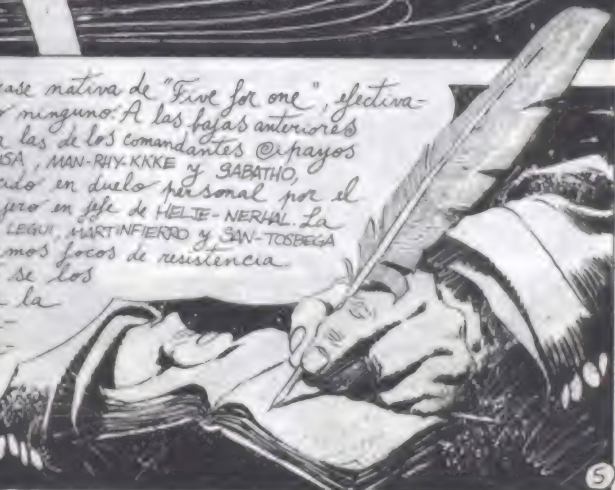 ase nativa de "Five for one", efectiva-
o ninguno. A las bajas anteriores
a las de los comandantes Cipayos
SA, MAN-RHY-KKKE y SABATHO,
cido en duelo personal por el
jero en jefe de HELTE-NERHAL. La
LEGUI, MARTINFIERRO y SAN-TOSBEGA
mos focos de resistencia.
se los
la
5